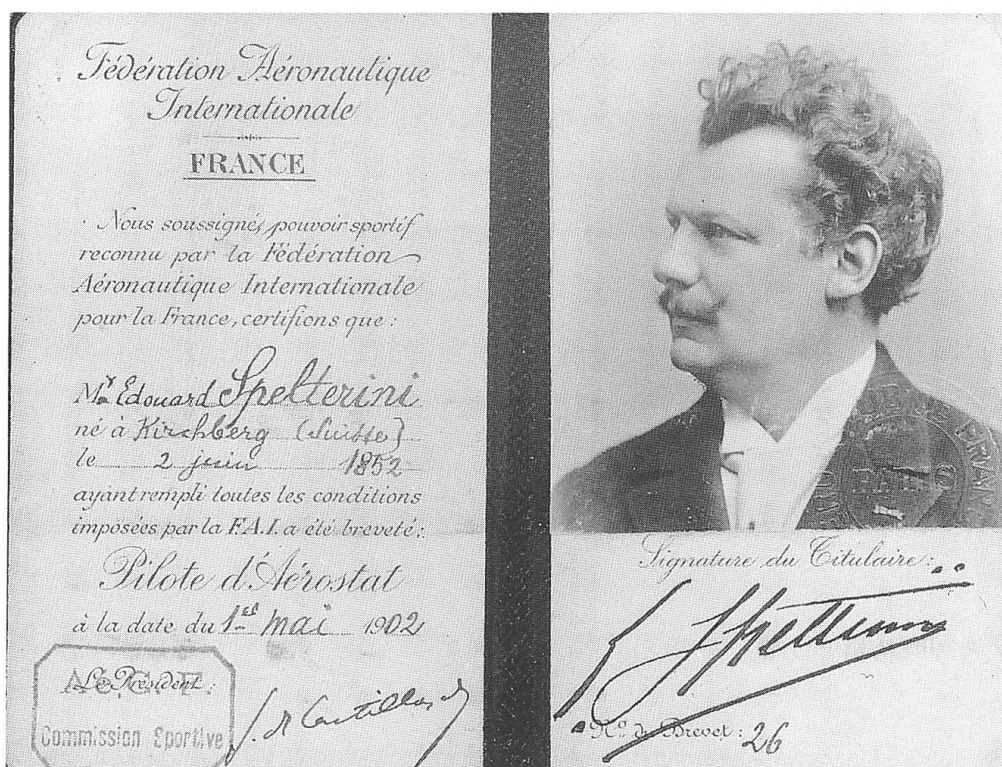 Fédération Aéronautique
Internationale
FRANCE
Nous soussignés, pouvoir sportif
reconnu par la Fédération
Aéronautique Internationale
pour la France, certifions que :
Mr Edouard Spelterini
né à Kirchberg (Suisse)
le 2 juin 1852
ayant rempli toutes les conditions
imposées par la F.A.I. a été breveté :
Pilote d'Aérostat
à la date du 1er mai 1902
Le Président :
Commission Sportive
DE FRANCE
PARIS
Signature du Titulaire :
Spelterini
No du Brevet : 26